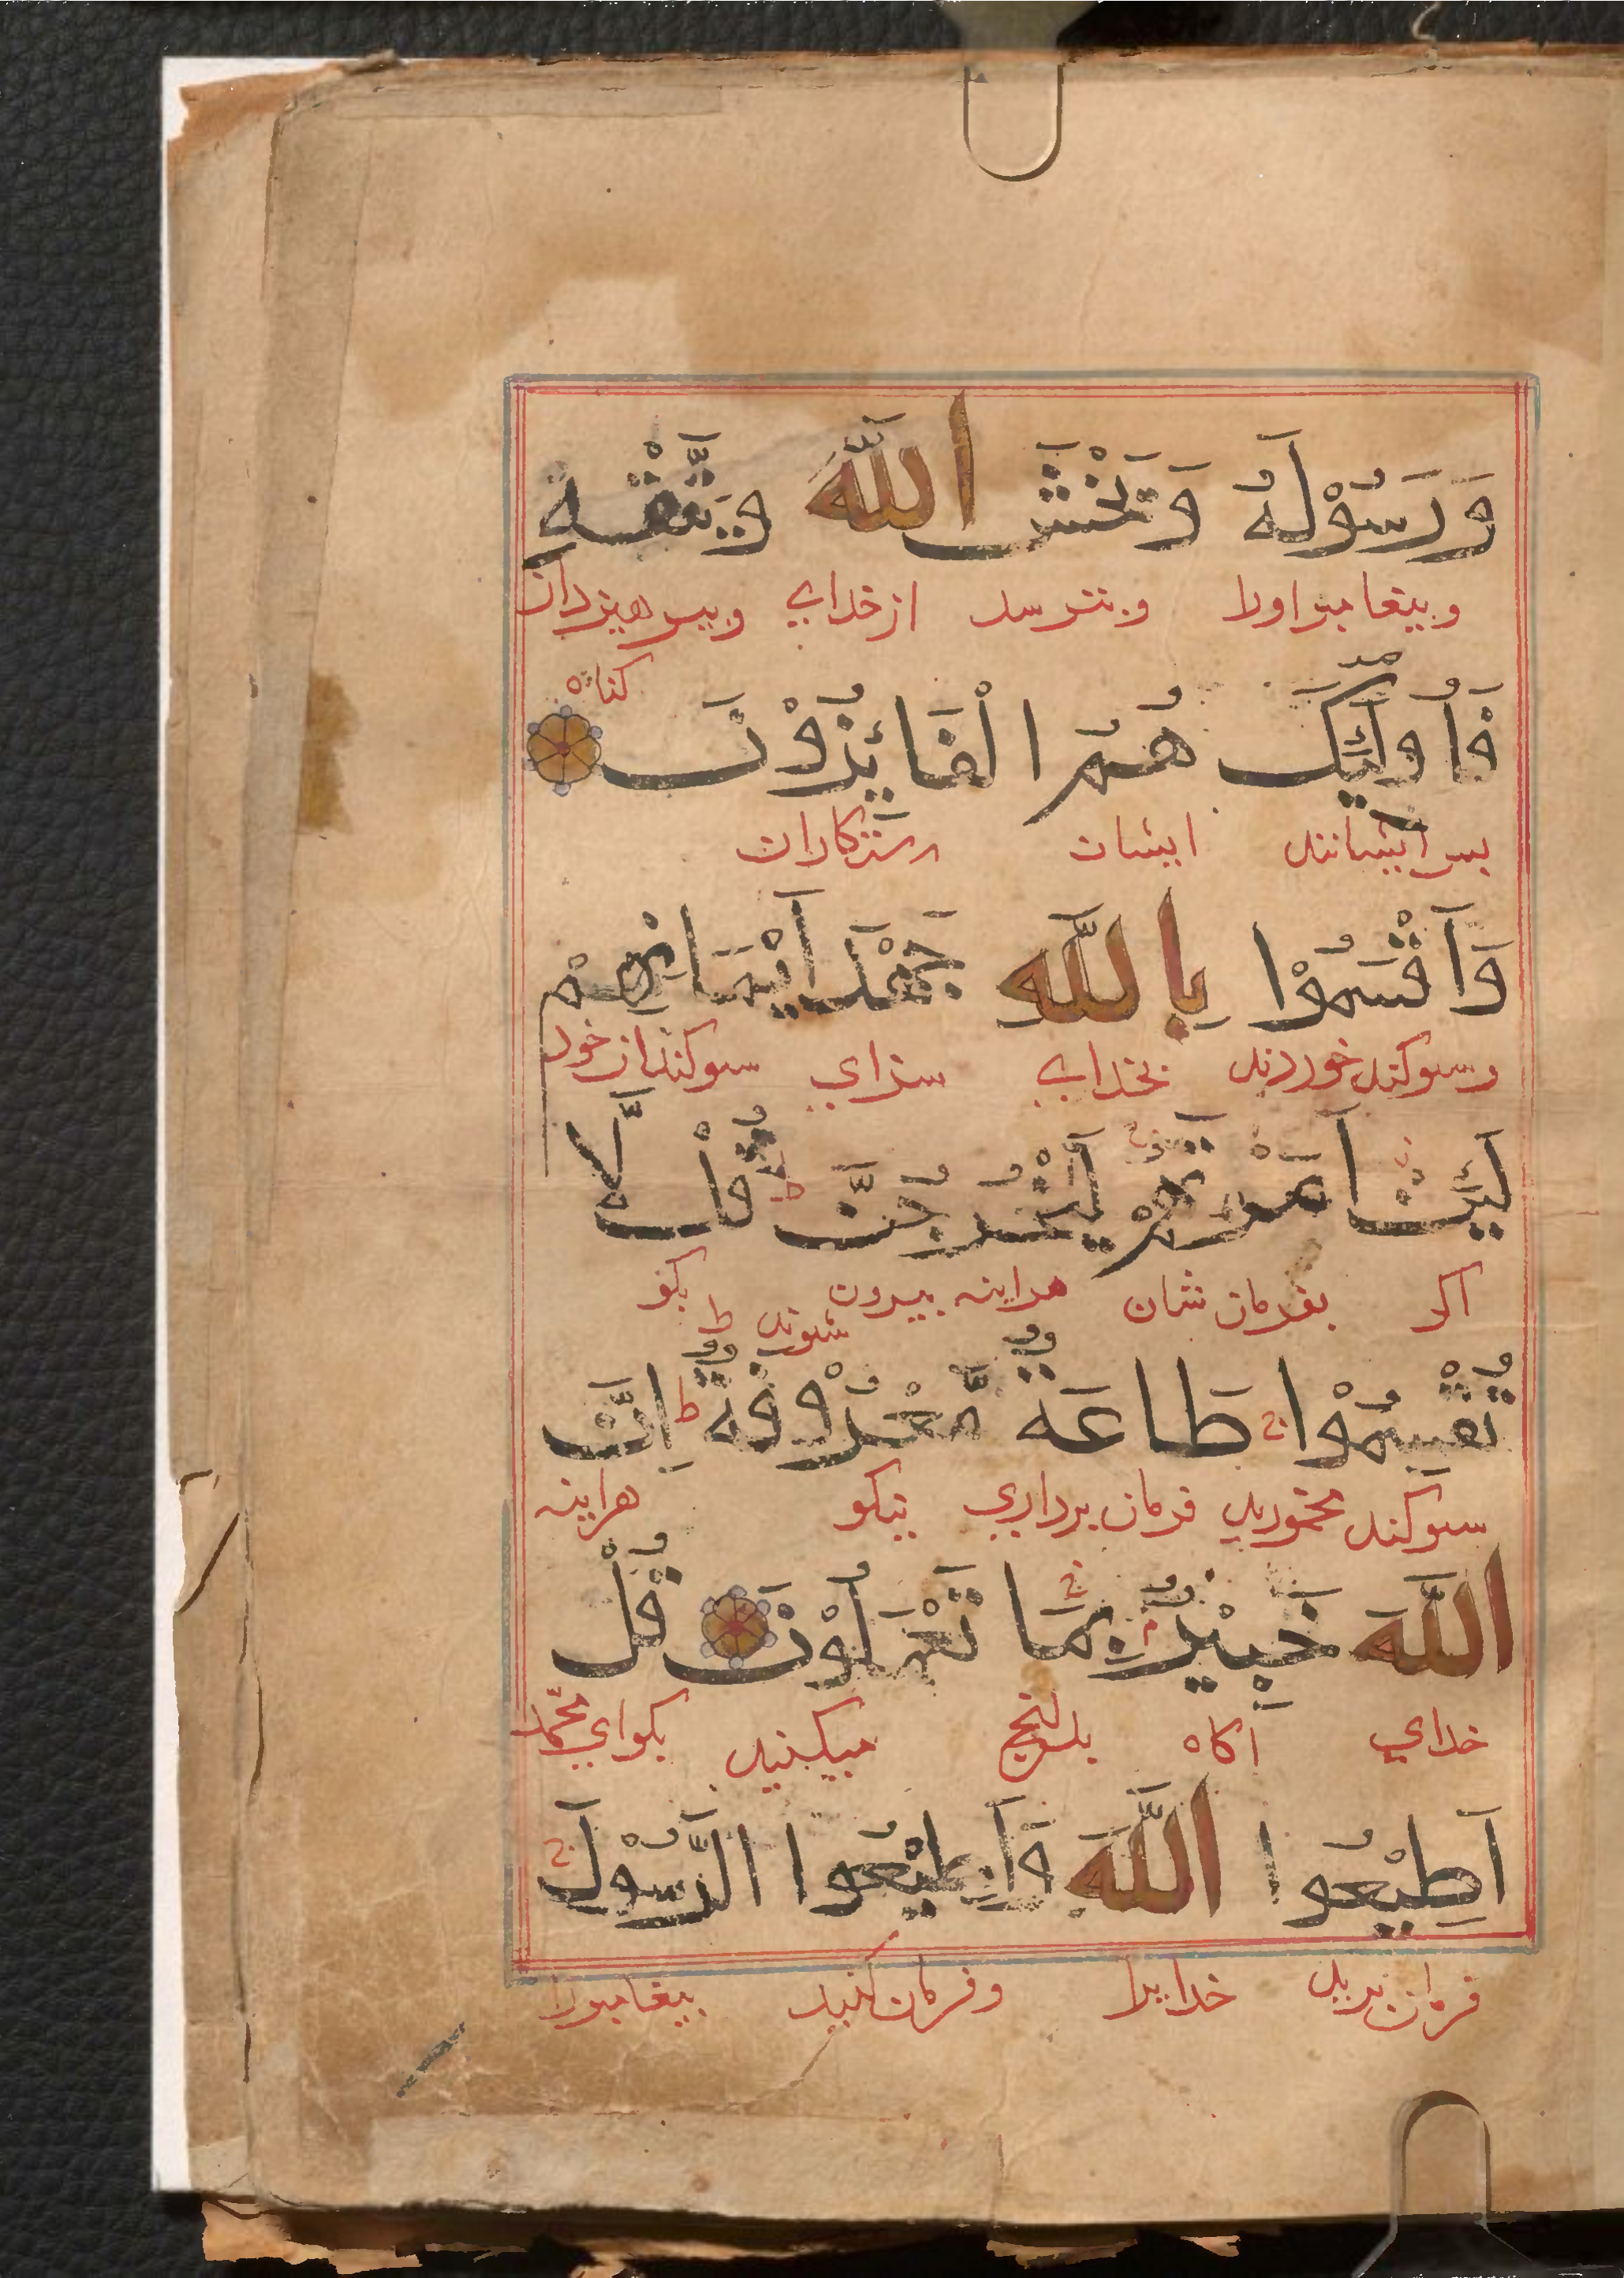 وَرَسُوْلَهُ وَيَخْشَ اللّٰهَ وَيَتَّقْهِ
وبيغامبر اورا وبترسد از خداى وبپرهيزد از
كناه
فَاُولٰٓئِكَ هُمُ الْفَائِزُوْنَ
بس ايشانند ايشان رستكاران
وَاَقْسَمُوْا بِاللّٰهِ جَهْدَ اَيْمَانِهِمْ
وسوكند خوردند بخداى سزاي سوكندان خود
لَئِنْ اَمَرْتَهُمْ لَيَخْرُجُنَّ ط قُلْ لَّا
اكر بفرمان شان هراينه بيرون شوند ط بكو
تُقْسِمُوْا طَاعَةٌ مَّعْرُوْفَةٌ ط اِنَّ
سوكند مخوريد فرمان برداري نيكو هراينه
اللّٰهَ خَبِيْرٌ بِمَا تَعْمَلُوْنَ قُلْ
خداي آكاه بدانج ميكنيد بكو اي محمّد
اَطِيْعُوا اللّٰهَ وَاَطِيْعُوا الرَّسُوْلَ
فرمان بريد خدايرا وفرمان كنيد بيغامبر را